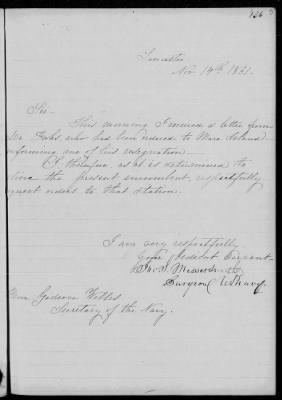 Lancaster
Nov 14th, 1861.
Sir-
This morning I received a letter from
Mr. who has been ordered to Mare Island
informing me of his resignation
I therefore, as it is determined to
relieve the present incumbent, respectfully
request orders to that station.
I am very respectfully
Your Obedient Servant
Surgeon U.S. Navy.
Hon. Gideon Welles
Secretary of the Navy.